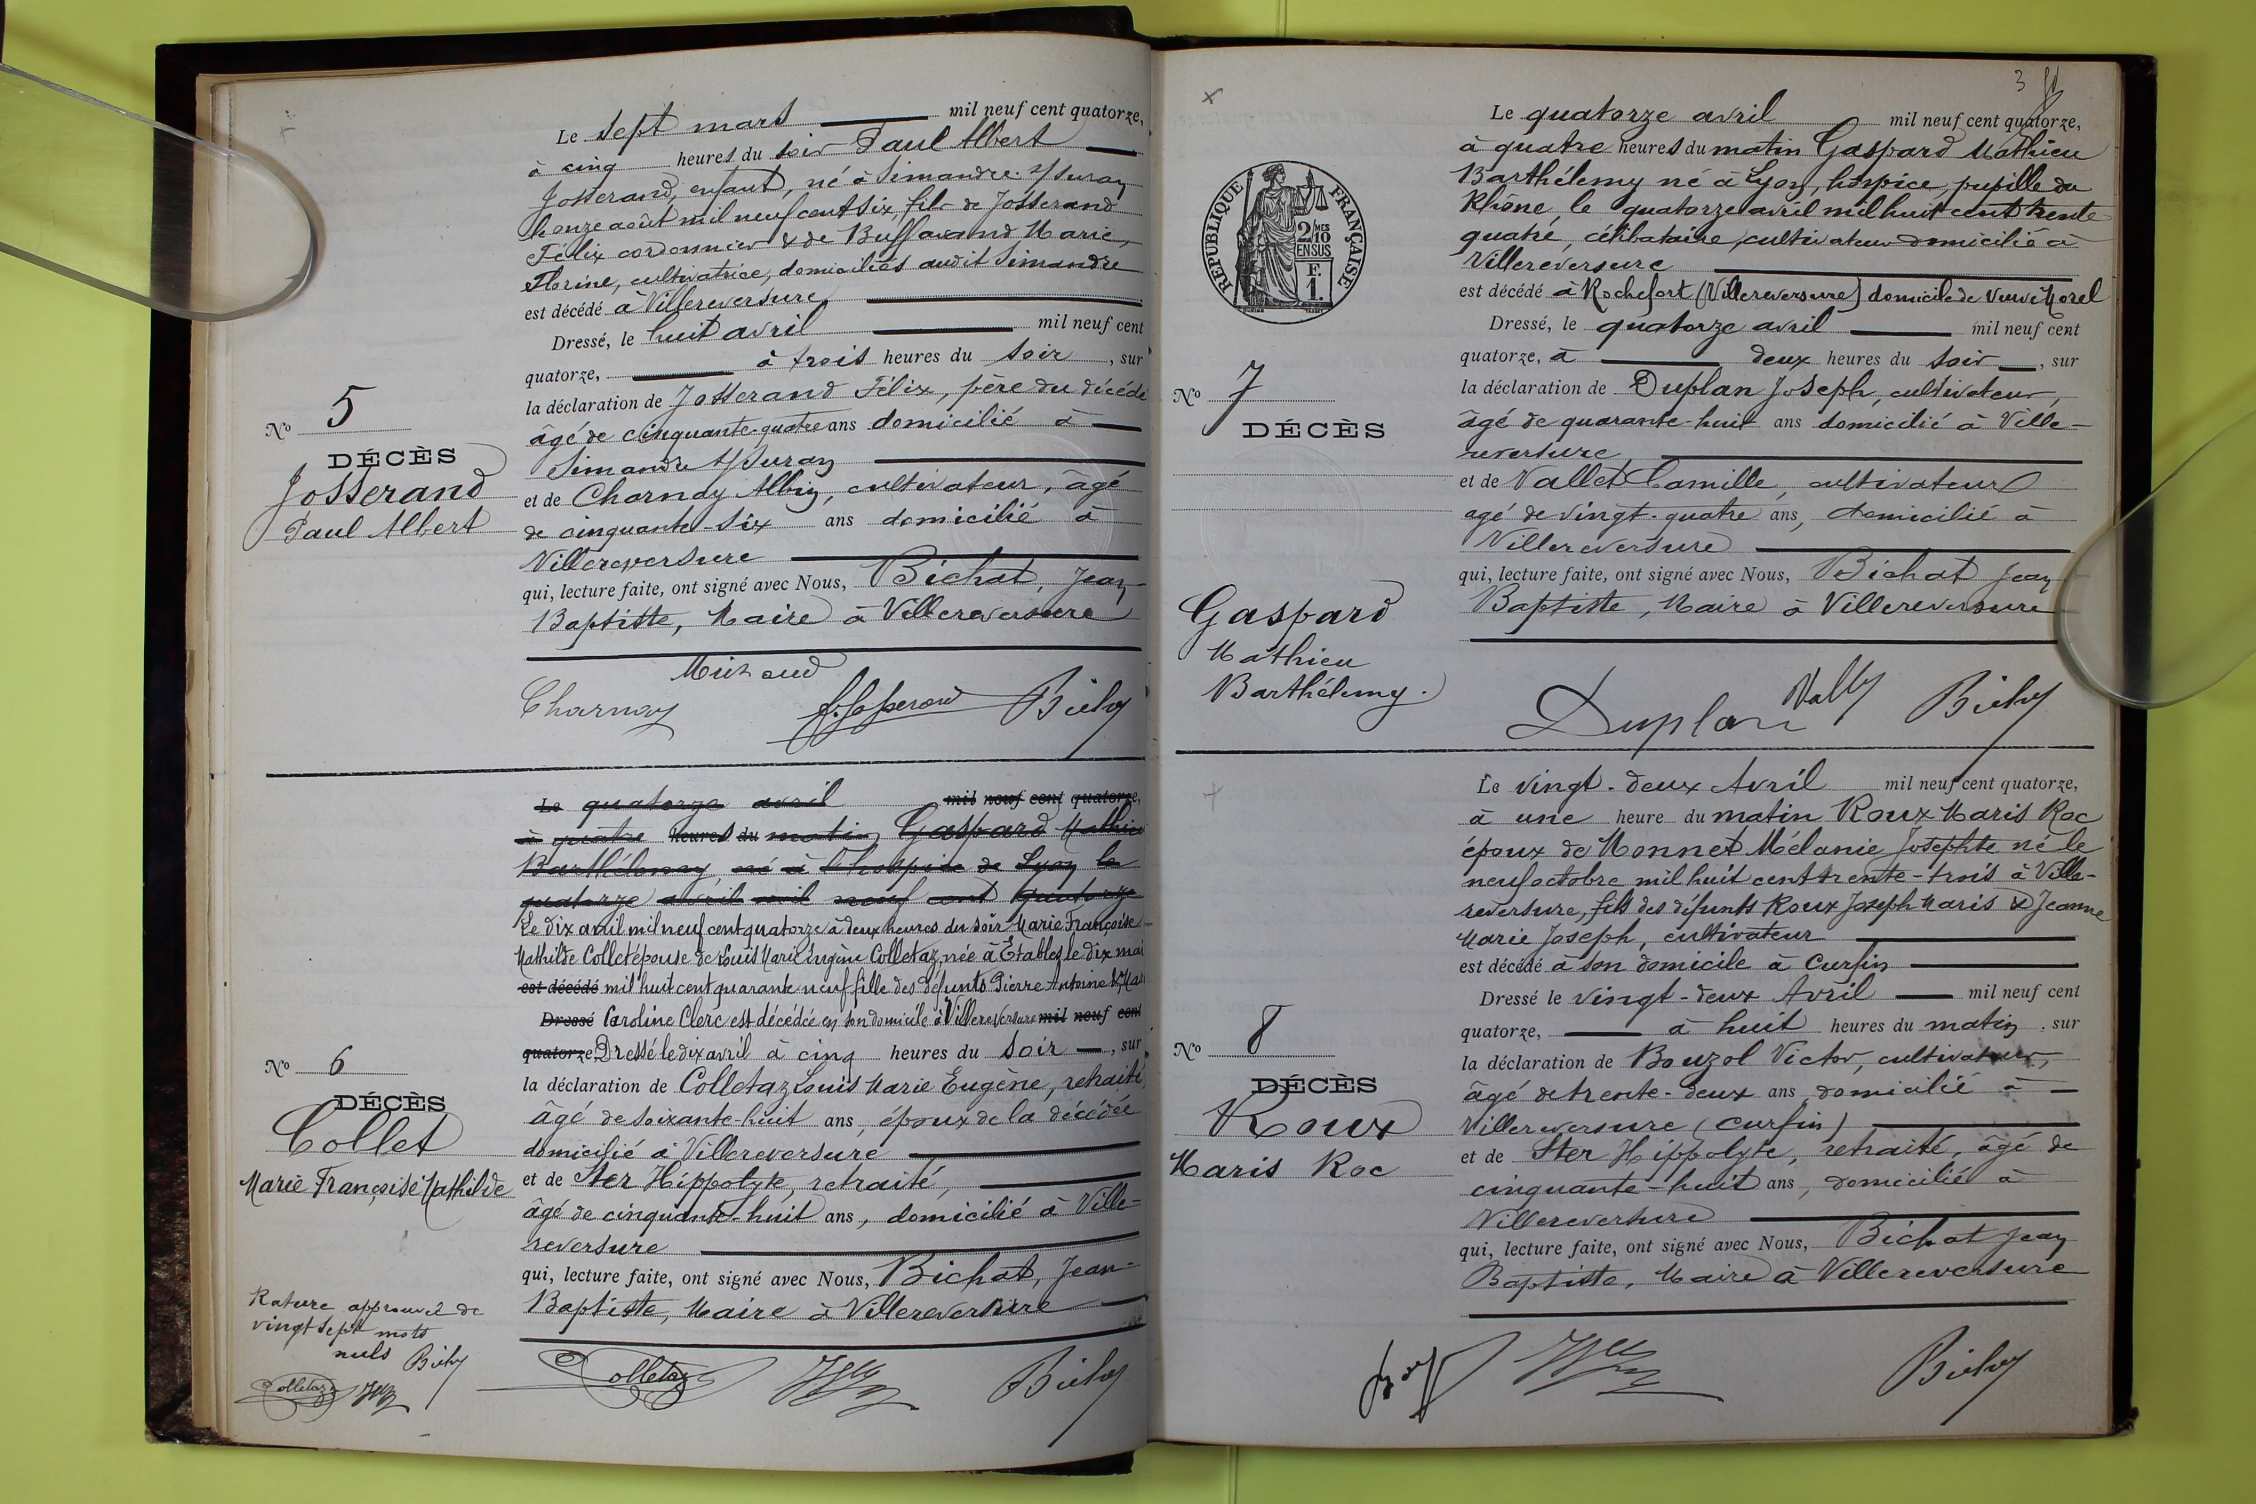 Le sept mars mil neuf cent quatorze,
à cinq heures du soir Paul Albert
Josserand, enfant, né à Simandre s/Suran
le onze août mil neuf cent six, fils de Josserand
Félix cordonnier & de Buffavand Marie,
Florine, cultivatrice, domiciliés audit Simandre
est décédé à Villereversure
Dressé, le huit avril mil neuf cent
quatorze, à trois heures du soir, sur
la déclaration de Josserand Félix, père du décédé
âgé de cinquante-quatre ans domicilié à
Simandre s/Suran
et de Charnay Albin, cultivateur, âgé
de cinquante-six ans domicilié à
Villereversure
qui, lecture faite, ont signé avec Nous, Bichat, Jean
Baptiste, Maire à Villereversure
Charnay
Nº 5
DÉCÈS
Josserand
Paul Albert
Le quatorze avril mil neuf cent quatorze,
à quatre heures du matin Gaspard Mathieu
Barthélemy, né à l'hospice de Lyon le
quatorze avril mil neuf cent quatorze
Le dix avril mil neuf cent quatorze à deux heures du soir Marie Françoise
Mathilde Collet épouse de Louis Marie Eugène Colletaz, née à Etables le dix mai
est décédé mil huit cent quarante neuf fille des défunts Pierre Antoine &
Dressé Caroline Clerc est décédée en son domicile à Villereversure mil neuf cent
quatorze Dressé le dix avril à cinq heures du soir, sur
la déclaration de Colletaz Louis Marie Eugène, retraité
âgé de soixante-huit ans, époux de la décédée
domicilié à Villereversure
et de Ster Hippolyte, retraité,
âgé de cinquante-huit ans, domicilié à Ville-
reversure
qui, lecture faite, ont signé avec Nous, Bichat, Jean-
Baptiste, Maire à Villereversure
Colletaz
Nº 6
DÉCÈS
Collet
Marie Françoise Mathilde
Rature approuvée de
vingt sept mots
nuls
Colletaz
3
RÉPUBLIQUE FRANÇAISE
2/10
MES
EN SUS
F.
1.
Le quatorze avril mil neuf cent quatorze,
à quatre heures du matin Gaspard Mathieu
Barthélemy né à Lyon, hospice, pupille du
Rhône, le quatorze avril mil huit cent trente
quatre, célibataire, cultivateur domicilié à
Villereversure
est décédé à Rochefort (Villereversure) domicile de veuve Morel
Dressé, le quatorze avril mil neuf cent
quatorze, à deux heures du soir, sur
la déclaration de Duplan Joseph, cultivateur,
âgé de quarante-huit ans domicilié à Ville-
reversure
et de Vallet Camille, cultivateur
agé de vingt-quatre ans, domicilié à
Villereversure
qui, lecture faite, ont signé avec Nous, Bichat Jean
Baptiste, Maire à Villereversure
Duplan
Nº 7
DÉCÈS
Gaspard
Mathieu
Barthélemy.
Le vingt-deux Avril mil neuf cent quatorze,
à une heure du matin Roux Maris Roc
époux de Monnet Mélanie Josephte né le
neuf octobre mil huit cent trente-trois à Ville-
reversure, fils des défunts Roux Joseph Maris & Jeanne
Marie Joseph, cultivateur
est décédé à son domicile à Curfin
Dressé le vingt-deux Avril mil neuf cent
quatorze, à huit heures du matin, sur
la déclaration de Bouzol Victor, cultivateur,
âgé de trente-deux ans domicilié à
Villereversure (Curfin)
et de Ster Hippolyte, retraité, âgé de
cinquante-huit ans, domicilié à
Villereversure
qui, lecture faite, ont signé avec Nous, Bichat Jean
Baptiste, Maire à Villereversure
Nº 8
DÉCÈS
Roux
Maris Roc